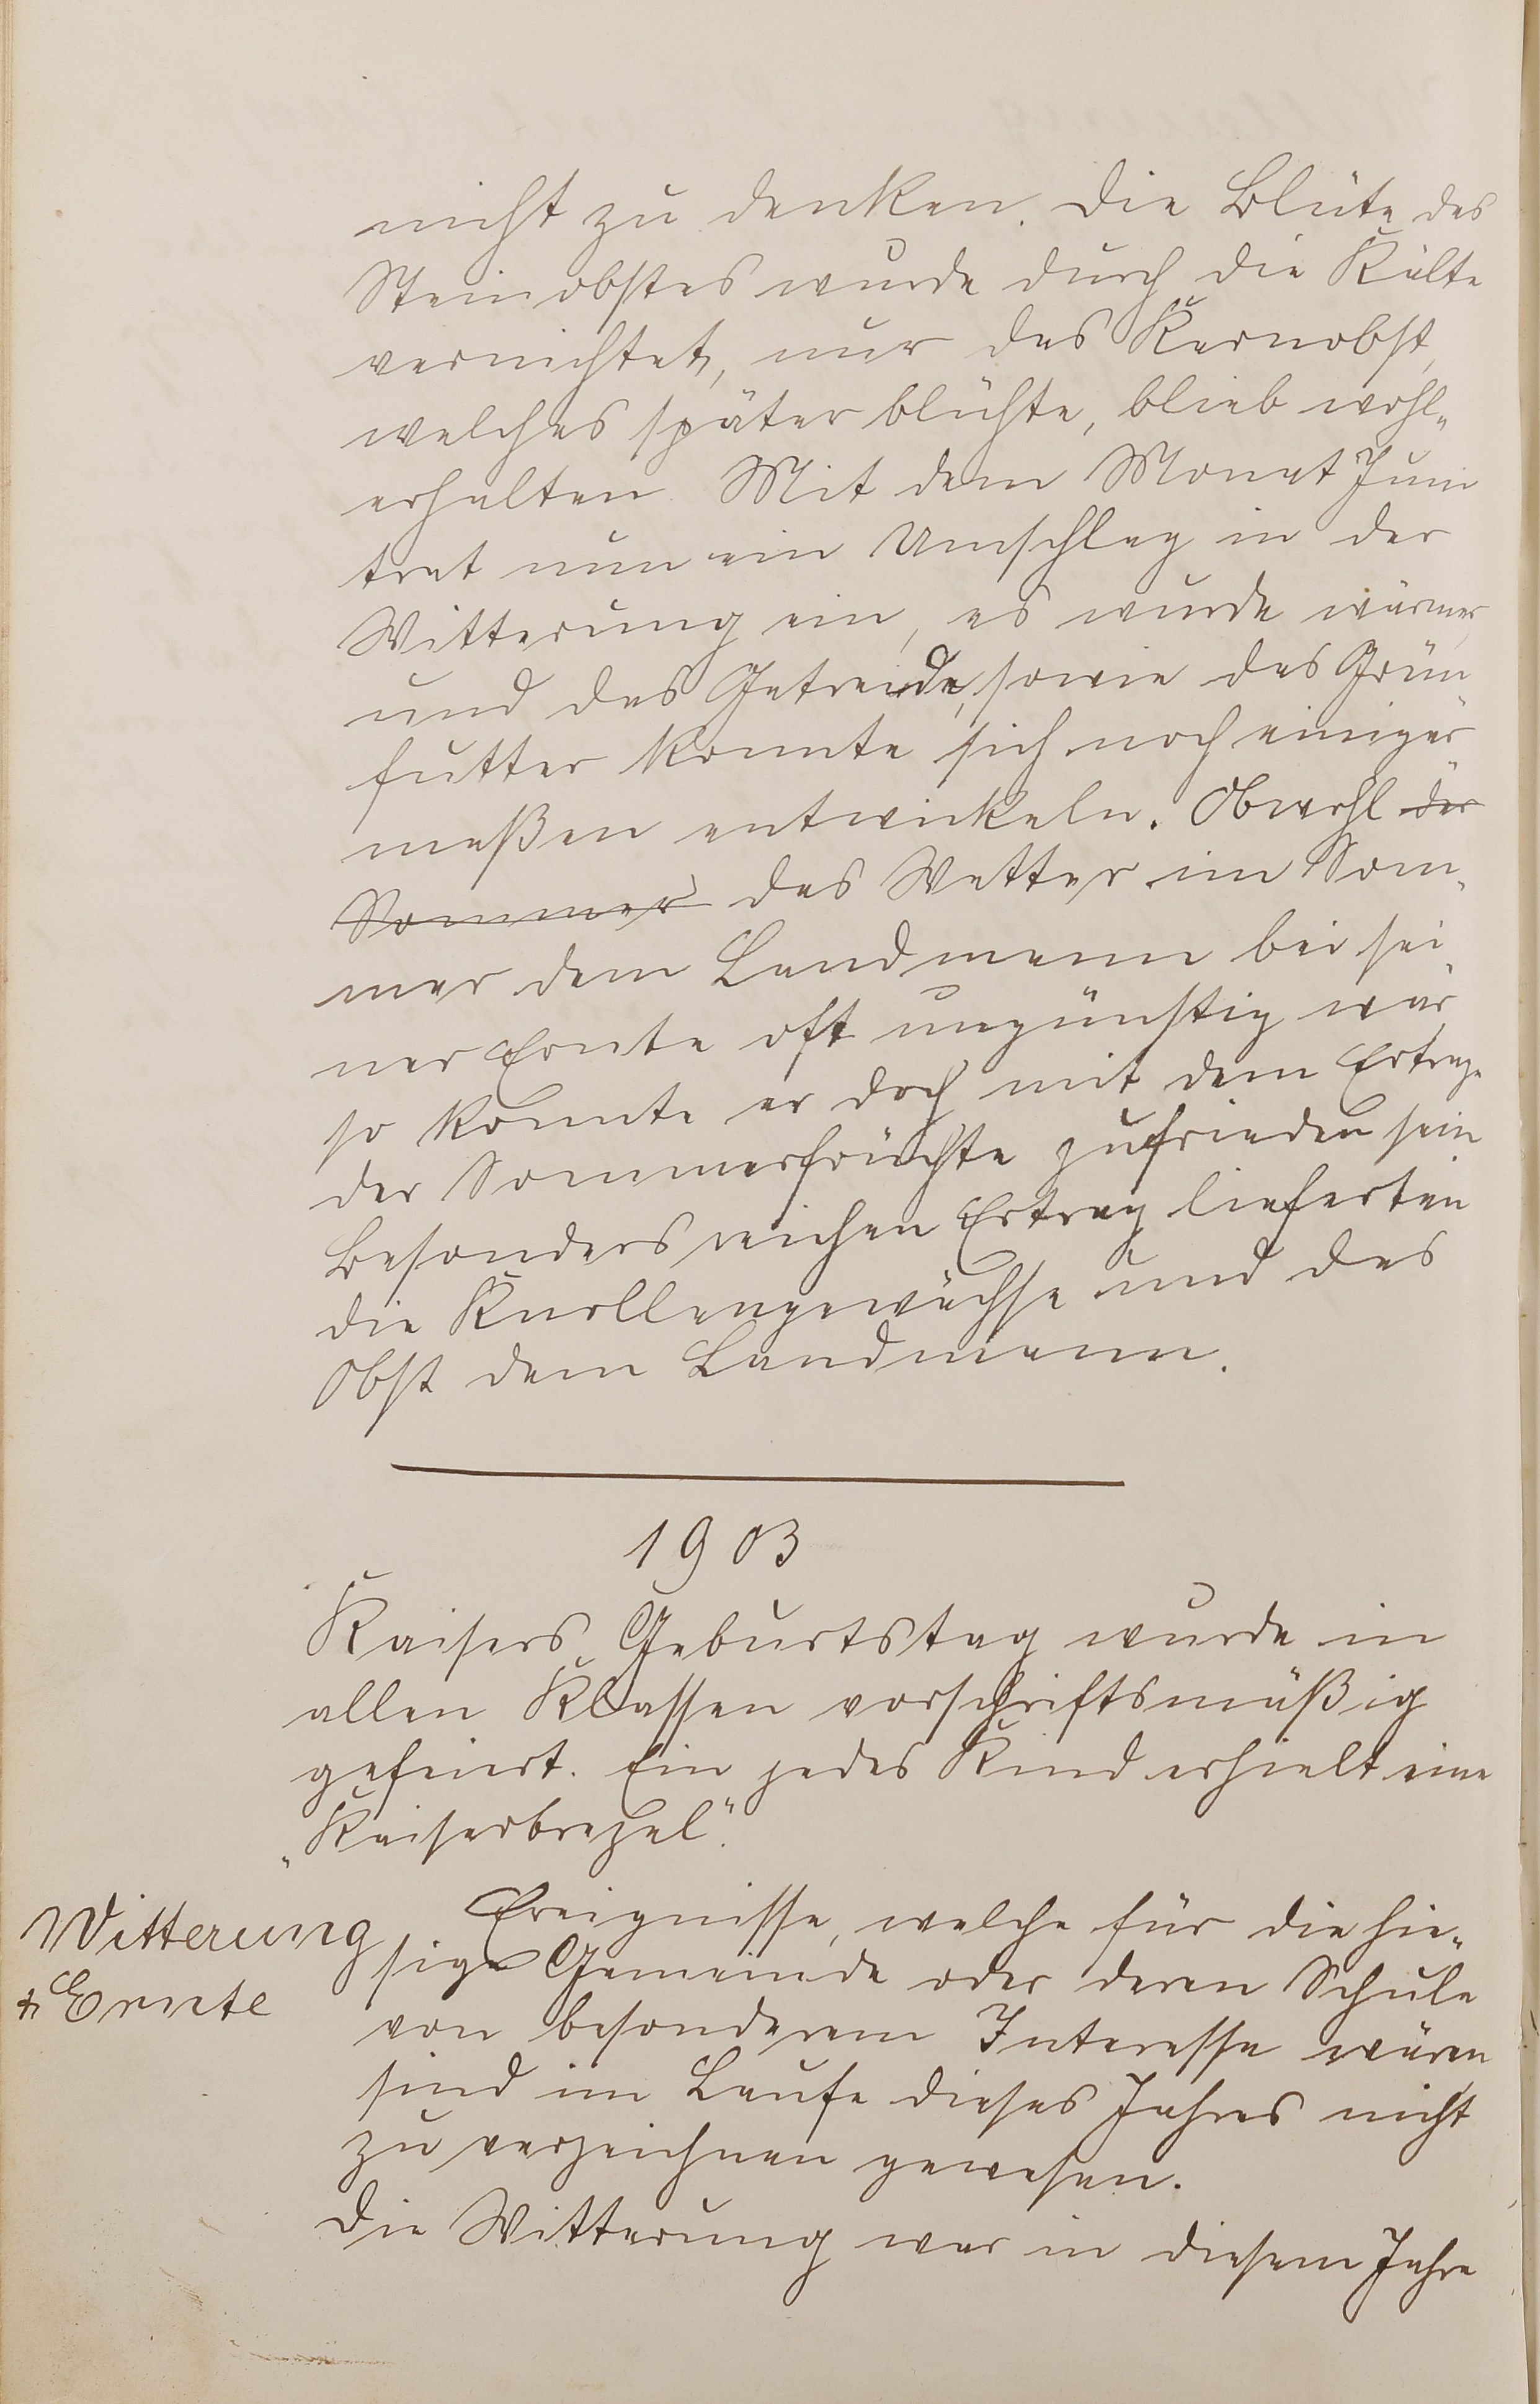 nicht zu denken. Die Blüte des
Steinobstes wurde durch die Kälte
vernichtet, nur das Kernobst,
welches später blühte, blieb wohl-
erhalten. Mit dem Monat Juni
trat nun ein Umschlag in der
Witterung ein, es wurde wärmer,
und das Getreide, sowie das Grün-
futter konnte sich noch einiger
maßen entwickeln. Obwohl der
Sommer das Wetter im Som-
mer dem Landmann bei sei-
ner Ernte oft ungünstig war,
so konnte er doch mit dem Ertrage
der Sommerfrüchte zufrieden sein
Besonders reichen Ertrag lieferten
die Knollengewächse und das
Obst dem Landmann.
1903
Kaisers Geburtstag wurde in
allen Klassen vorschriftsmäßig
gefeiert. Ein jedes Kind erhielt eine
„Kaiserbrezel“.
Witterung
+ Ernte
Ereignisse, welche für die hie-
sige Gemeinde oder deren Schule
von besonderem Interesse wären,
sind im Laufe dieses Jahres nicht
zu verzeichnen gewesen.
Die Witterung war in diesem Jahre